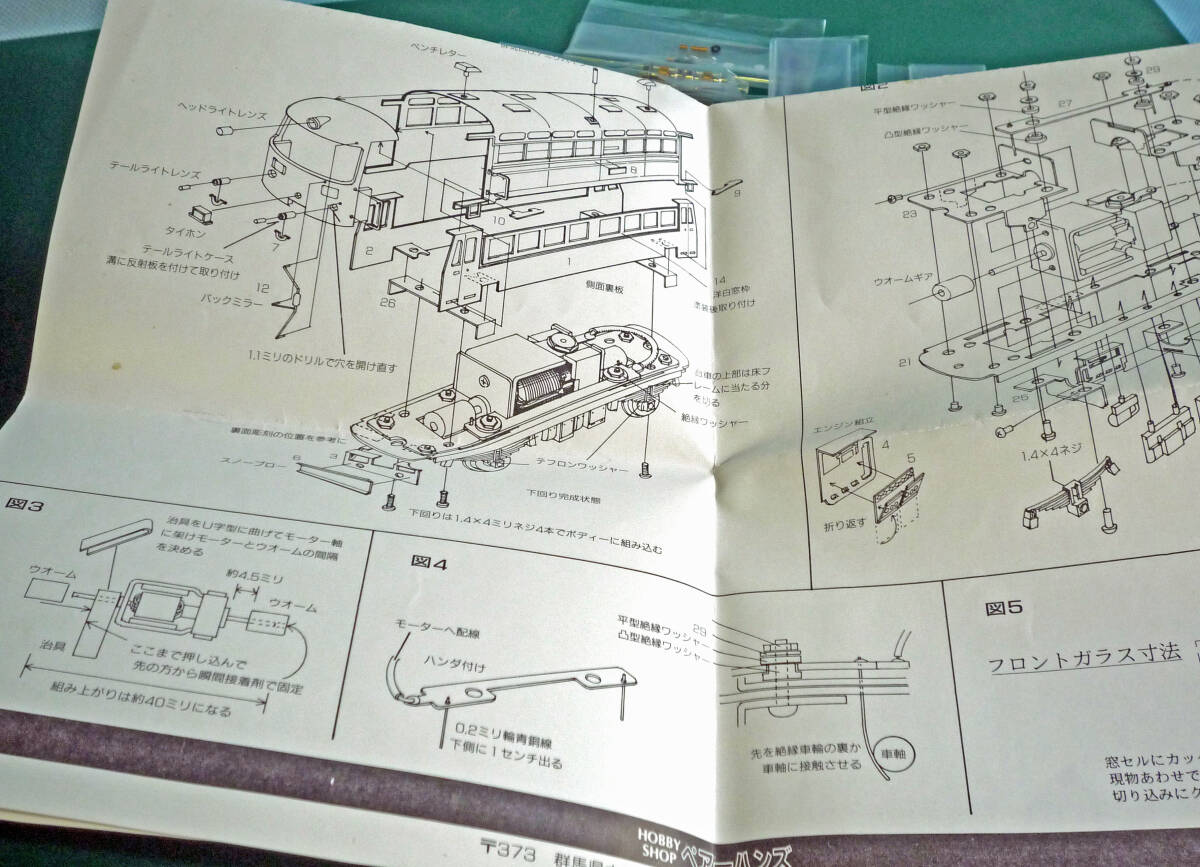 ベンチレター
ヘッドライトレンズ
テールライトレンズ
タイホン
テールライトケース
溝に反射板を付けて取り付け
7
2
12
バックミラー
1.1ミリのドリルで穴を開け直す
26
10
8
9
1
側面裏板
14
洋白窓枠
塗装後取り付け
台車の上部は床フ
レームに当たる分
を切る
絶縁ワッシャー
テフロンワッシャー
裏面彫刻の位置を参考に
スノープロー
6
3
下回り完成状態
下回りは1.4×4ミリネジ4本でボディーに組み込む
図2
平型絶縁ワッシャー
凸型絶縁ワッシャー
29
27
23
ウオームギア
21
25
エンジン組立
4
5
折り返す
1.4×4ネジ
図3
治具をU字型に曲げてモーター軸
に架けモーターとウオームの間隔
を決める
ウオーム
約4.5ミリ
ウオーム
治具
ここまで押し込んで
先の方から瞬間接着剤で固定
組み上がりは約40ミリになる
図4
モーターへ配線
ハンダ付け
0.2ミリ輪青銅線
下側に1センチ出る
29
平型絶縁ワッシャー
凸型絶縁ワッシャー
先を絶縁車輪の裏か
車軸に接触させる
車軸
図5
フロントガラス寸法
窓セルにカッ
現物あわせで
切り込みにク
HOBBY
SHOP
ペアーハンズ
〒373 群馬県